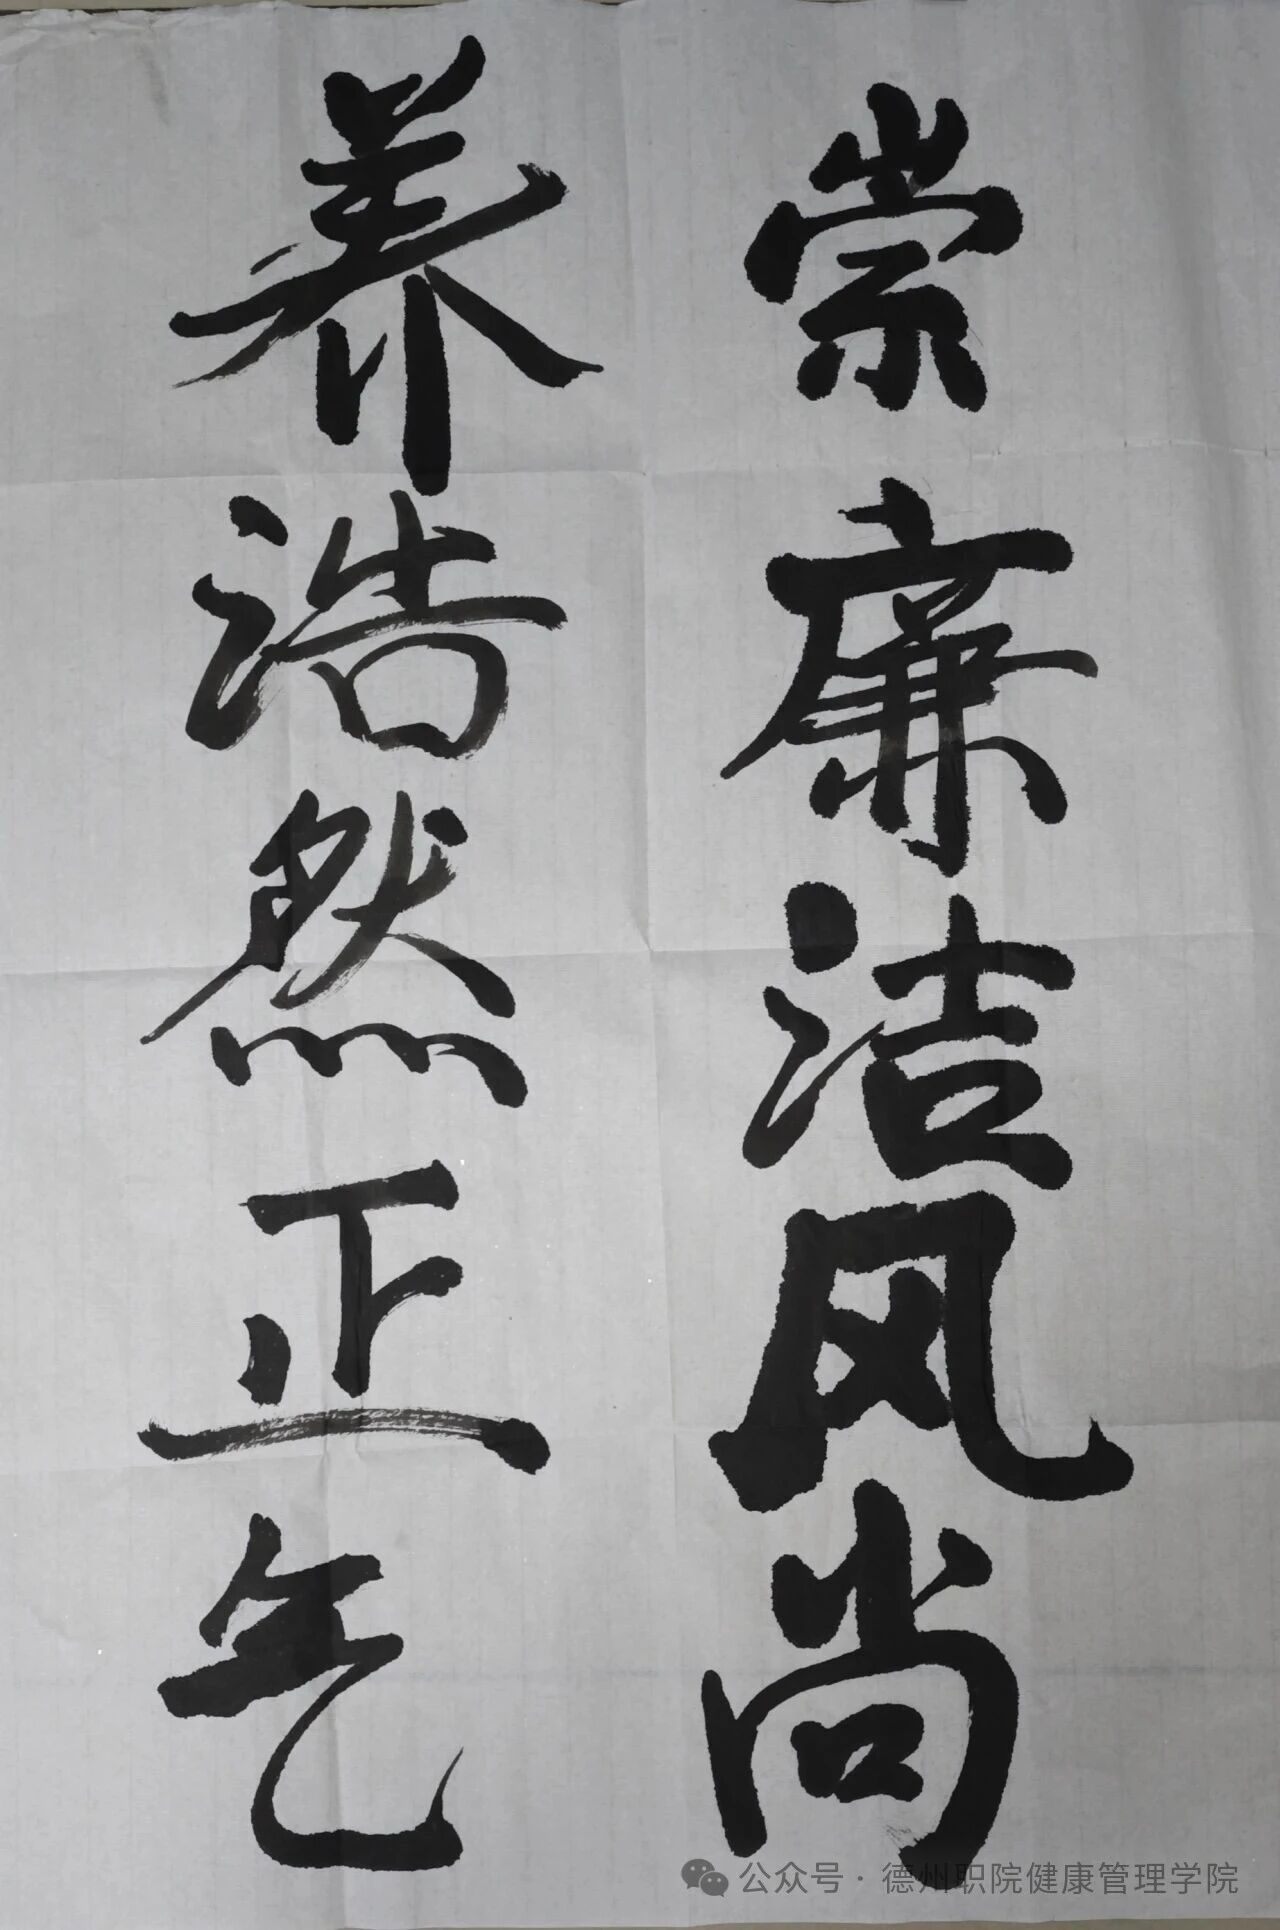 崇廉洁风尚
养浩然正气
公众号·德州职院健康管理学院